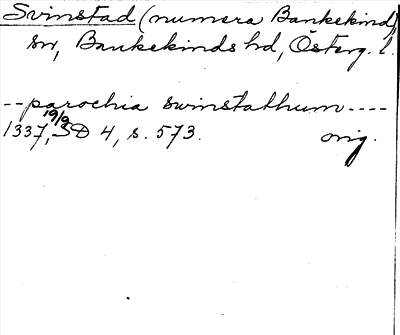 Svinstad (numera Bankekind)
sn, Bankekinds hd, Österg. l.
-- parochia swinstathum ----
1337, 19/9 SD 4, s. 573. orig.